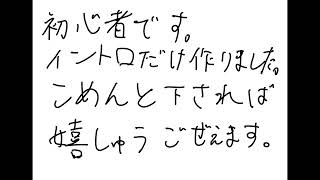 初心者です。
イントロだけ作りました。
こめんと下されば
嬉しゅうごぜえます。